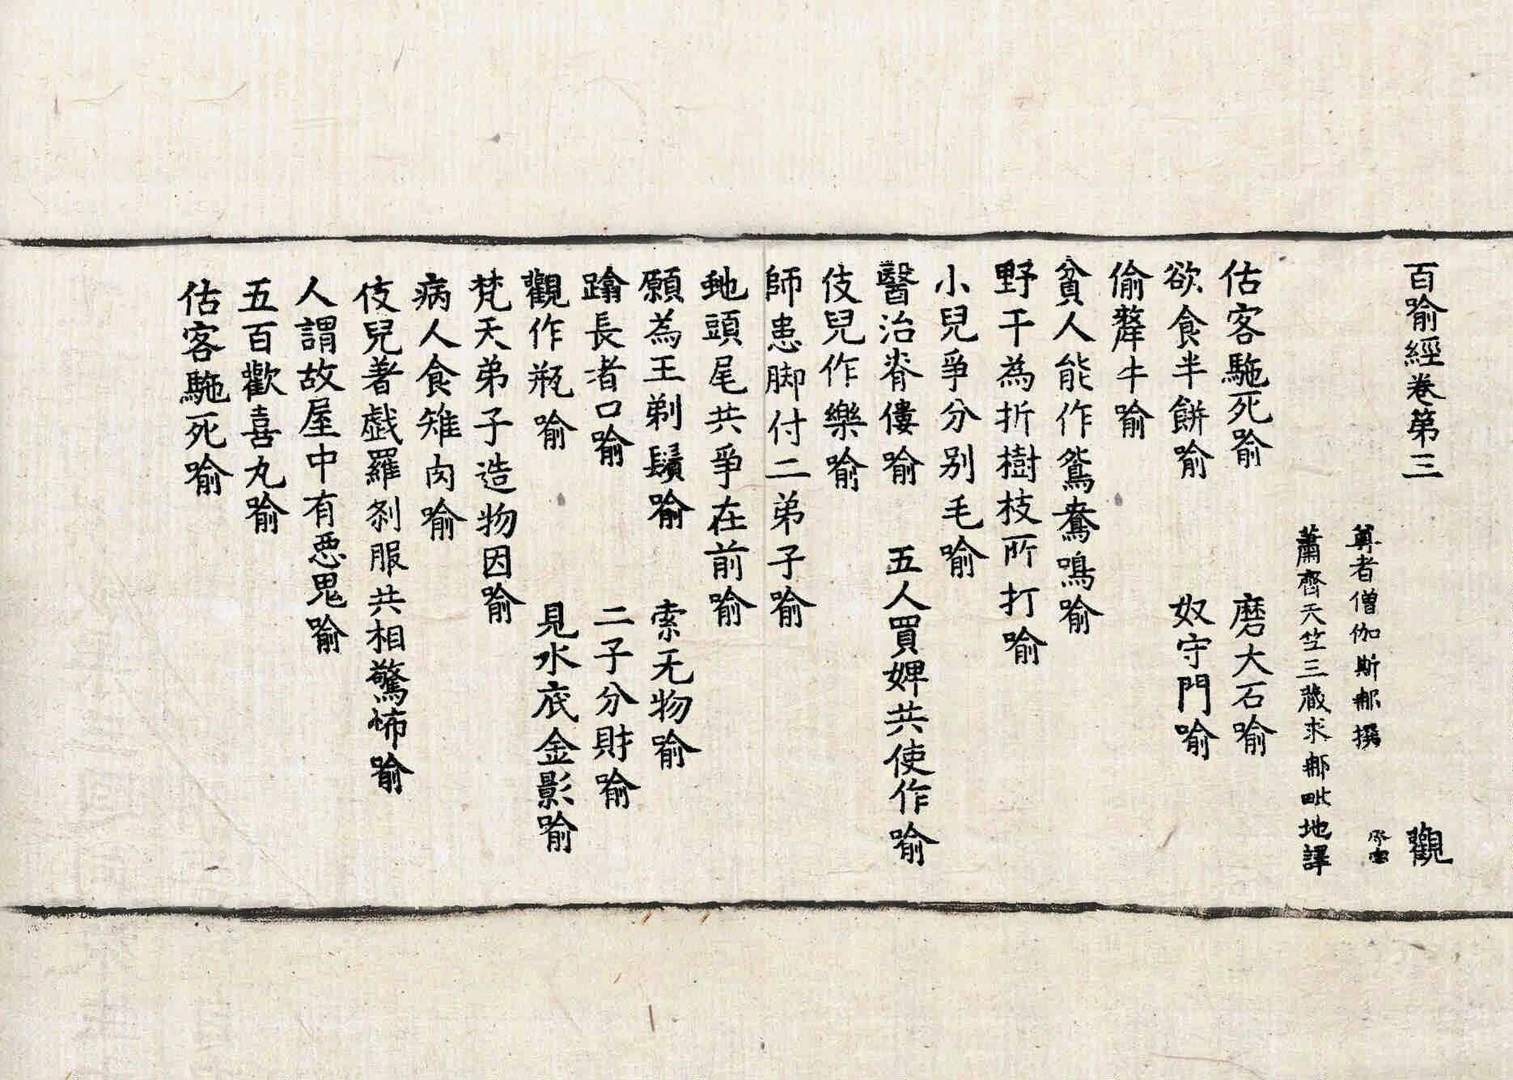 百喻經卷第三 觀
尊者僧伽斯那撰
蕭齊天竺三藏求那毗地譯
估客駞死喻 磨大石喻
欲食半餅喻 奴守門喻
偷犛牛喻
貧人能作鴛鴦鳴喻
野干為折樹枝所打喻
小兒爭分別毛喻
醫治脊僂喻 五人買婢共使作喻
伎兒作樂喻
師患脚付二弟子喻
虵頭尾共爭在前喻
願為王剃鬚喻 索无物喻
蹹長者口喻 二子分財喻
觀作瓶喻 見水底金影喻
梵天弟子造物因喻
病人食雉肉喻
伎兒著戲羅剎服共相驚怖喻
人謂故屋中有惡鬼喻
五百歡喜丸喻
估客駞死喻